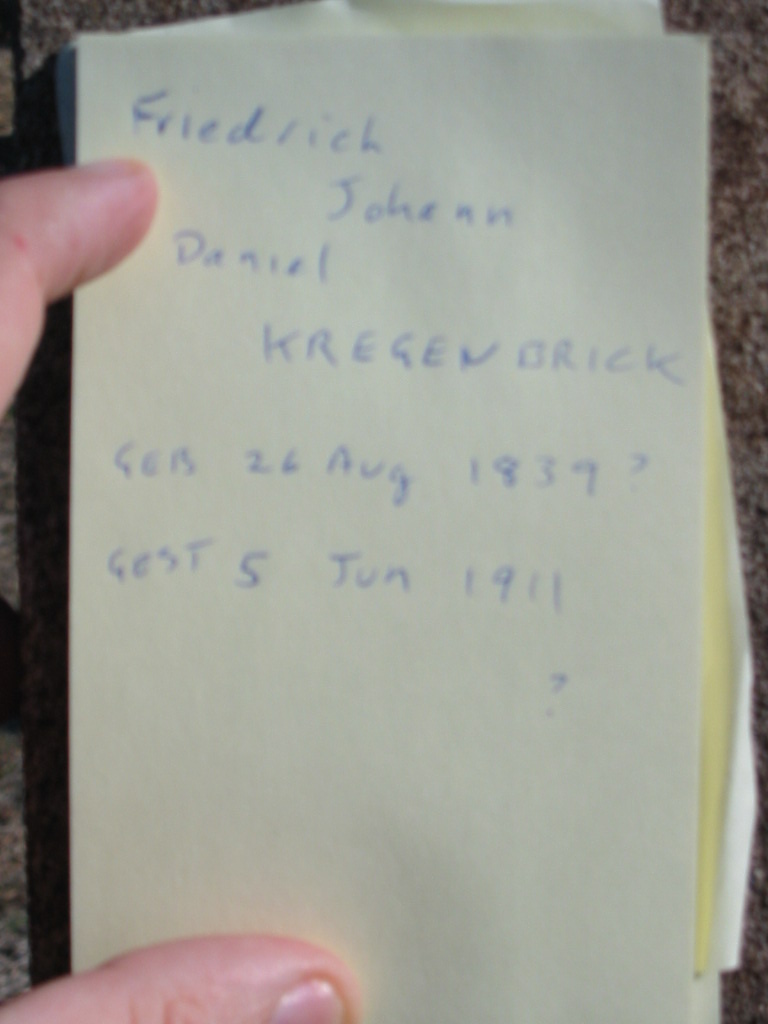 Friedrich
Johann
Daniel
KREGENBRICK
GEB 26 Aug 1839 ?
GEST 5 Jun 1911
?